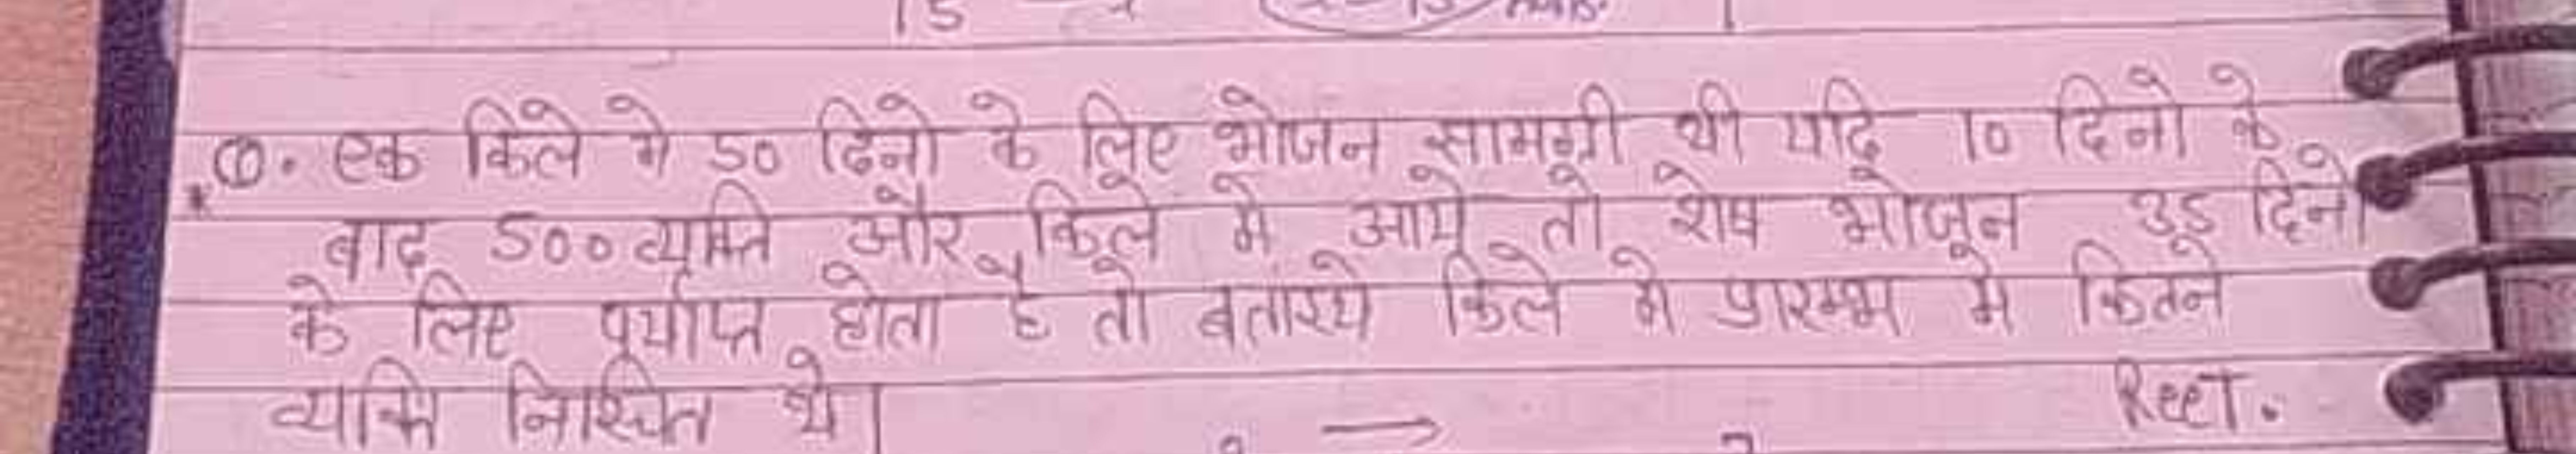 Q. एक किले मे 50 दिनो के लिए भोजन सामग्री थी यदि 10 दिनो के
* बाद 500 व्यक्ति और किले मे आये तो शेष भोजन 35 दिनो
के लिए पर्याप्त होता है तो बताइये किले मे प्रारम्भ मे कितने
व्यक्ति निश्चित थे।
Reet.